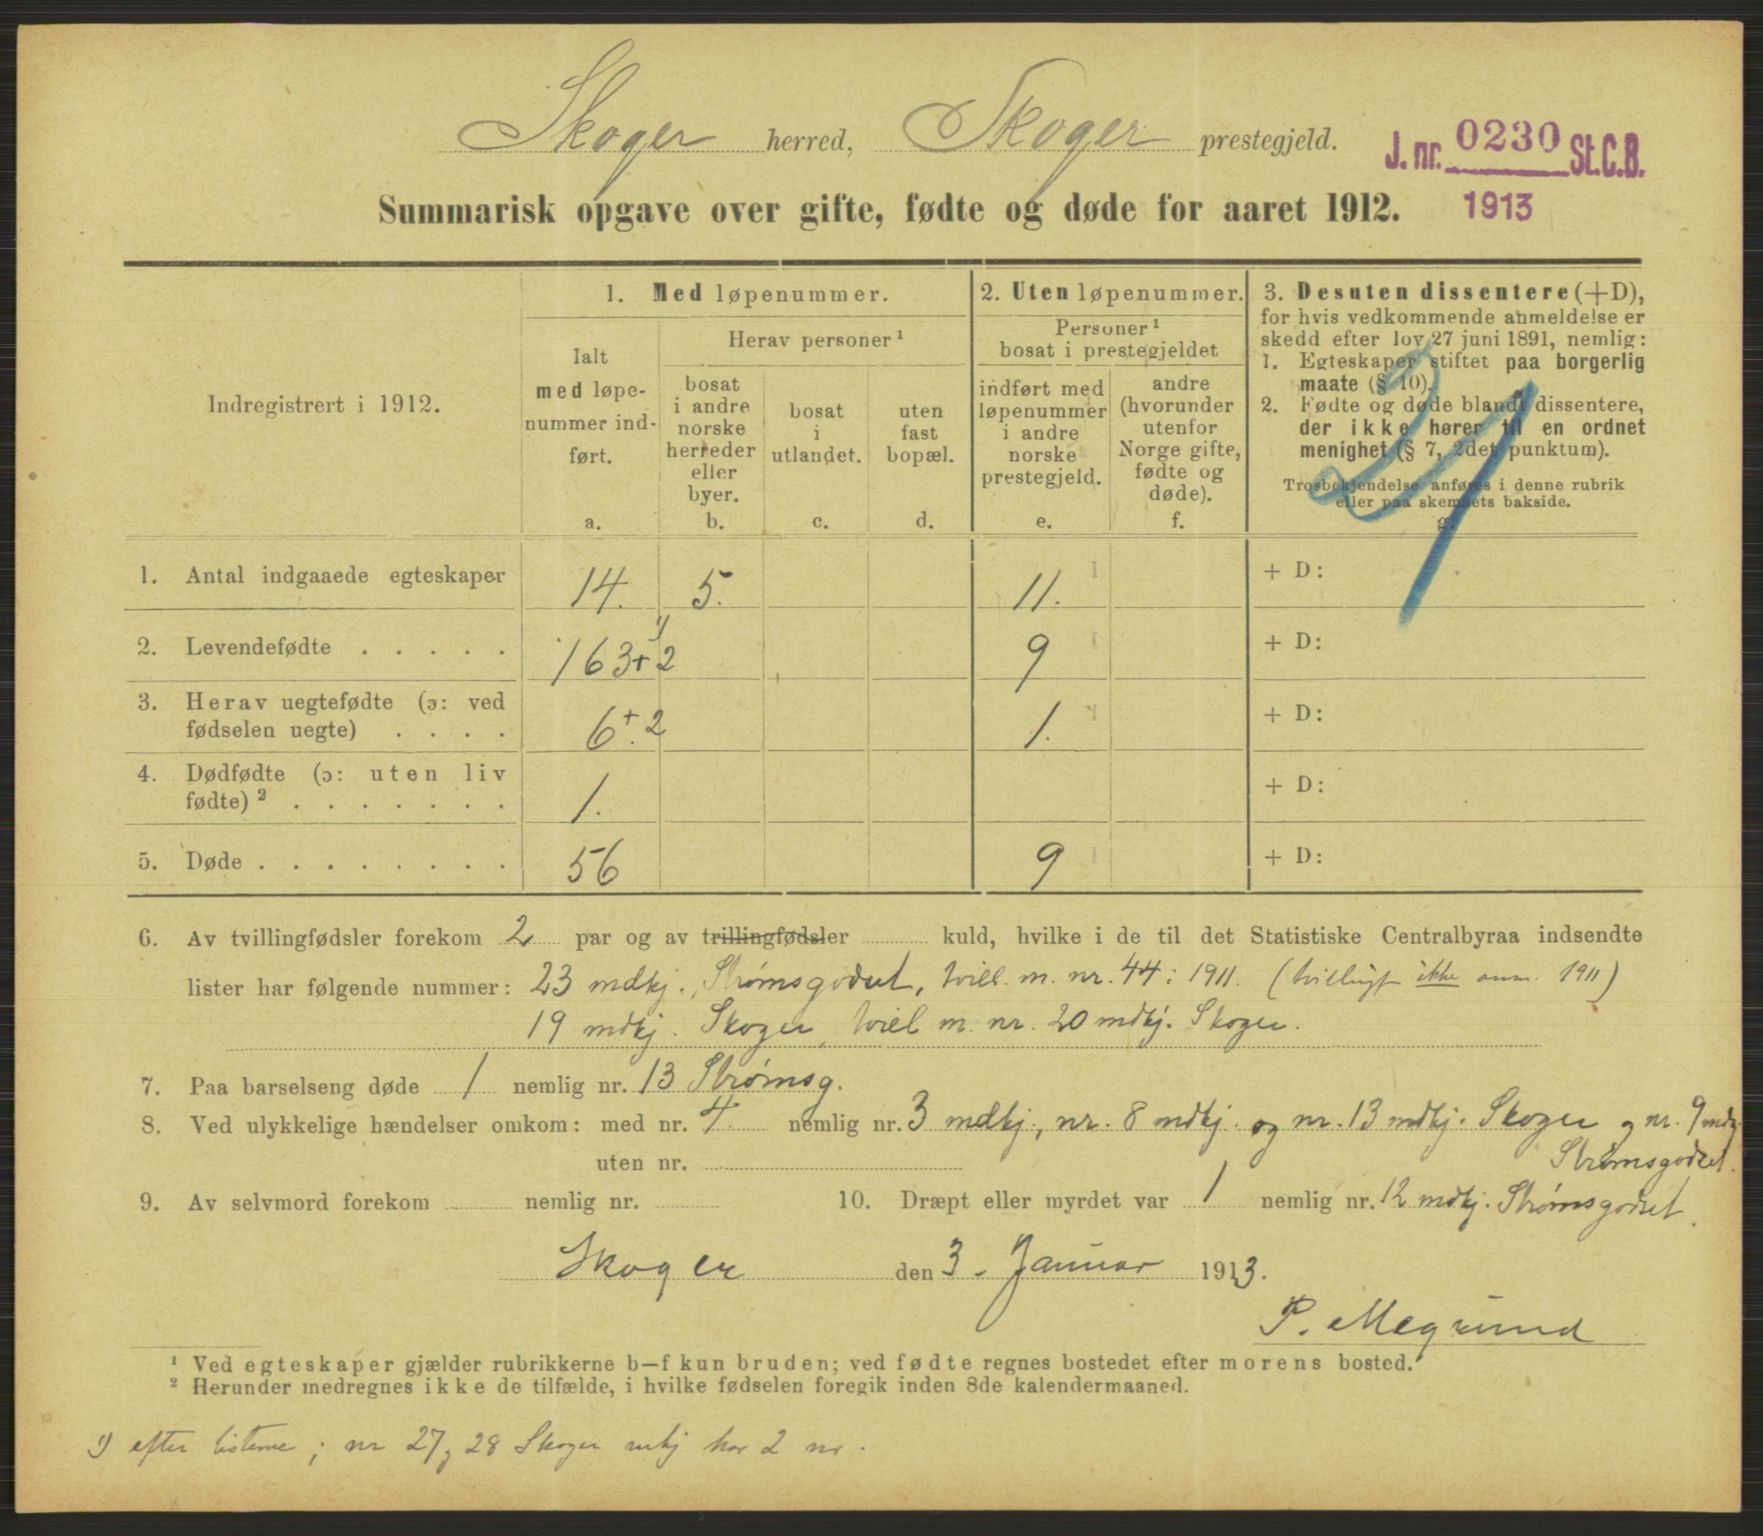 Skoger herred, Skoger prestegjeld.
J. nr. 0230 St.C.B.
1913
Summarisk opgave over gifte, fødte og døde for aaret 1912.
Indregistrert i 1912.
1. Med løpenummer.
Ialt
med løpe-
nummer ind-
ført.
a.
Herav personer ¹
bosat
i andre
norske
herreder
eller
byer.
b.
bosat
i
utlandet.
c.
uten
fast
bopæl.
d.
2. Uten løpenummer.
Personer ¹
bosat i prestegjeldet
indført med
løpenummer
i andre
norske
prestegjeld.
e.
andre
(hvorunder
utenfor
Norge gifte,
fødte og
døde).
f.
3. Desuten dissentere (+D),
for hvis vedkommende anmeldelse er
skedd efter lov 27 juni 1891, nemlig:
1. Egteskaper stiftet paa borgerlig
maate (§ 10).
2. Fødte og døde blandt dissentere,
der ikke hører til en ordnet
menighet (§ 7, 2det punktum).
Trosbekjendelse anføres i denne rubrik
eller paa skemaets bakside.
g.
21
1. Antal indgaaede egteskaper 14. 5. 11. + D:
2. Levendefødte . . . . . 163+2 1) 9 + D:
3. Herav uegtefødte (ɔ: ved
fødselen uegte) . . . . 6.+2 1. + D:
4. Dødfødte (ɔ: uten liv
fødte) ² . . . . . . . 1. + D:
5. Døde . . . . . . . . 56 9 + D:
6. Av tvillingfødsler forekom 2 par og av trillingfødsler kuld, hvilke i de til det Statistiske Centralbyraa indsendte
lister har følgende nummer: 23 mdkj., Strømsgodset, tvill. m. nr. 44 i 1911. ( ikke anm. 1911)
19 mdkj. Skoger, tvill m. nr. 20 mdkj. Skoger.
7. Paa barselseng døde 1 nemlig nr. 13 Strømsg.
8. Ved ulykkelige hændelser omkom: med nr. 4 nemlig nr. 3 mdkj., nr. 8 mdkj. og nr. 13 mdkj. Skoger og nr. 9 mdkj
uten nr. Strømsgodset.
9. Av selvmord forekom nemlig nr. 10. Dræpt eller myrdet var 1 nemlig nr. 12 mdkj. Strømsgodset.
Skoger den 3. Januar 1913.
P. Megrund
¹ Ved egteskaper gjælder rubrikkerne b—f kun bruden; ved fødte regnes bostedet efter morens bosted.
² Herunder medregnes ikke de tilfælde, i hvilke fødselen foregik inden 8de kalendermaaned.
1) efter listerne; nr 27 og 28 Skoger har 2 nr.